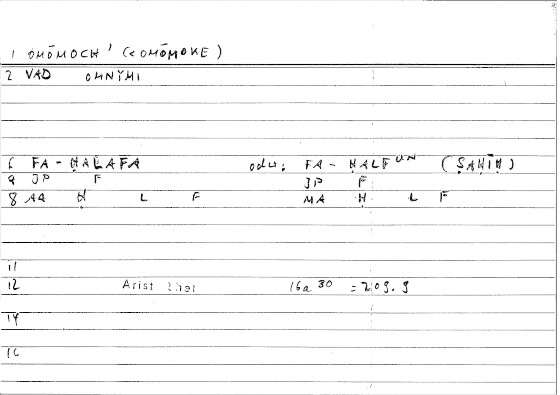 1 OMŌMOCH' (< OMŌMOKE)
2 VAD OMNYMI
6 FA - ḤALAFA odu: FA - ḤALFUN (ṢAḤĪḤ)
9 JP F JP F
8 AA Ḥ L F MA Ḥ L F
11
12 Arist Rhet 16a 30 = 209.9
14
16